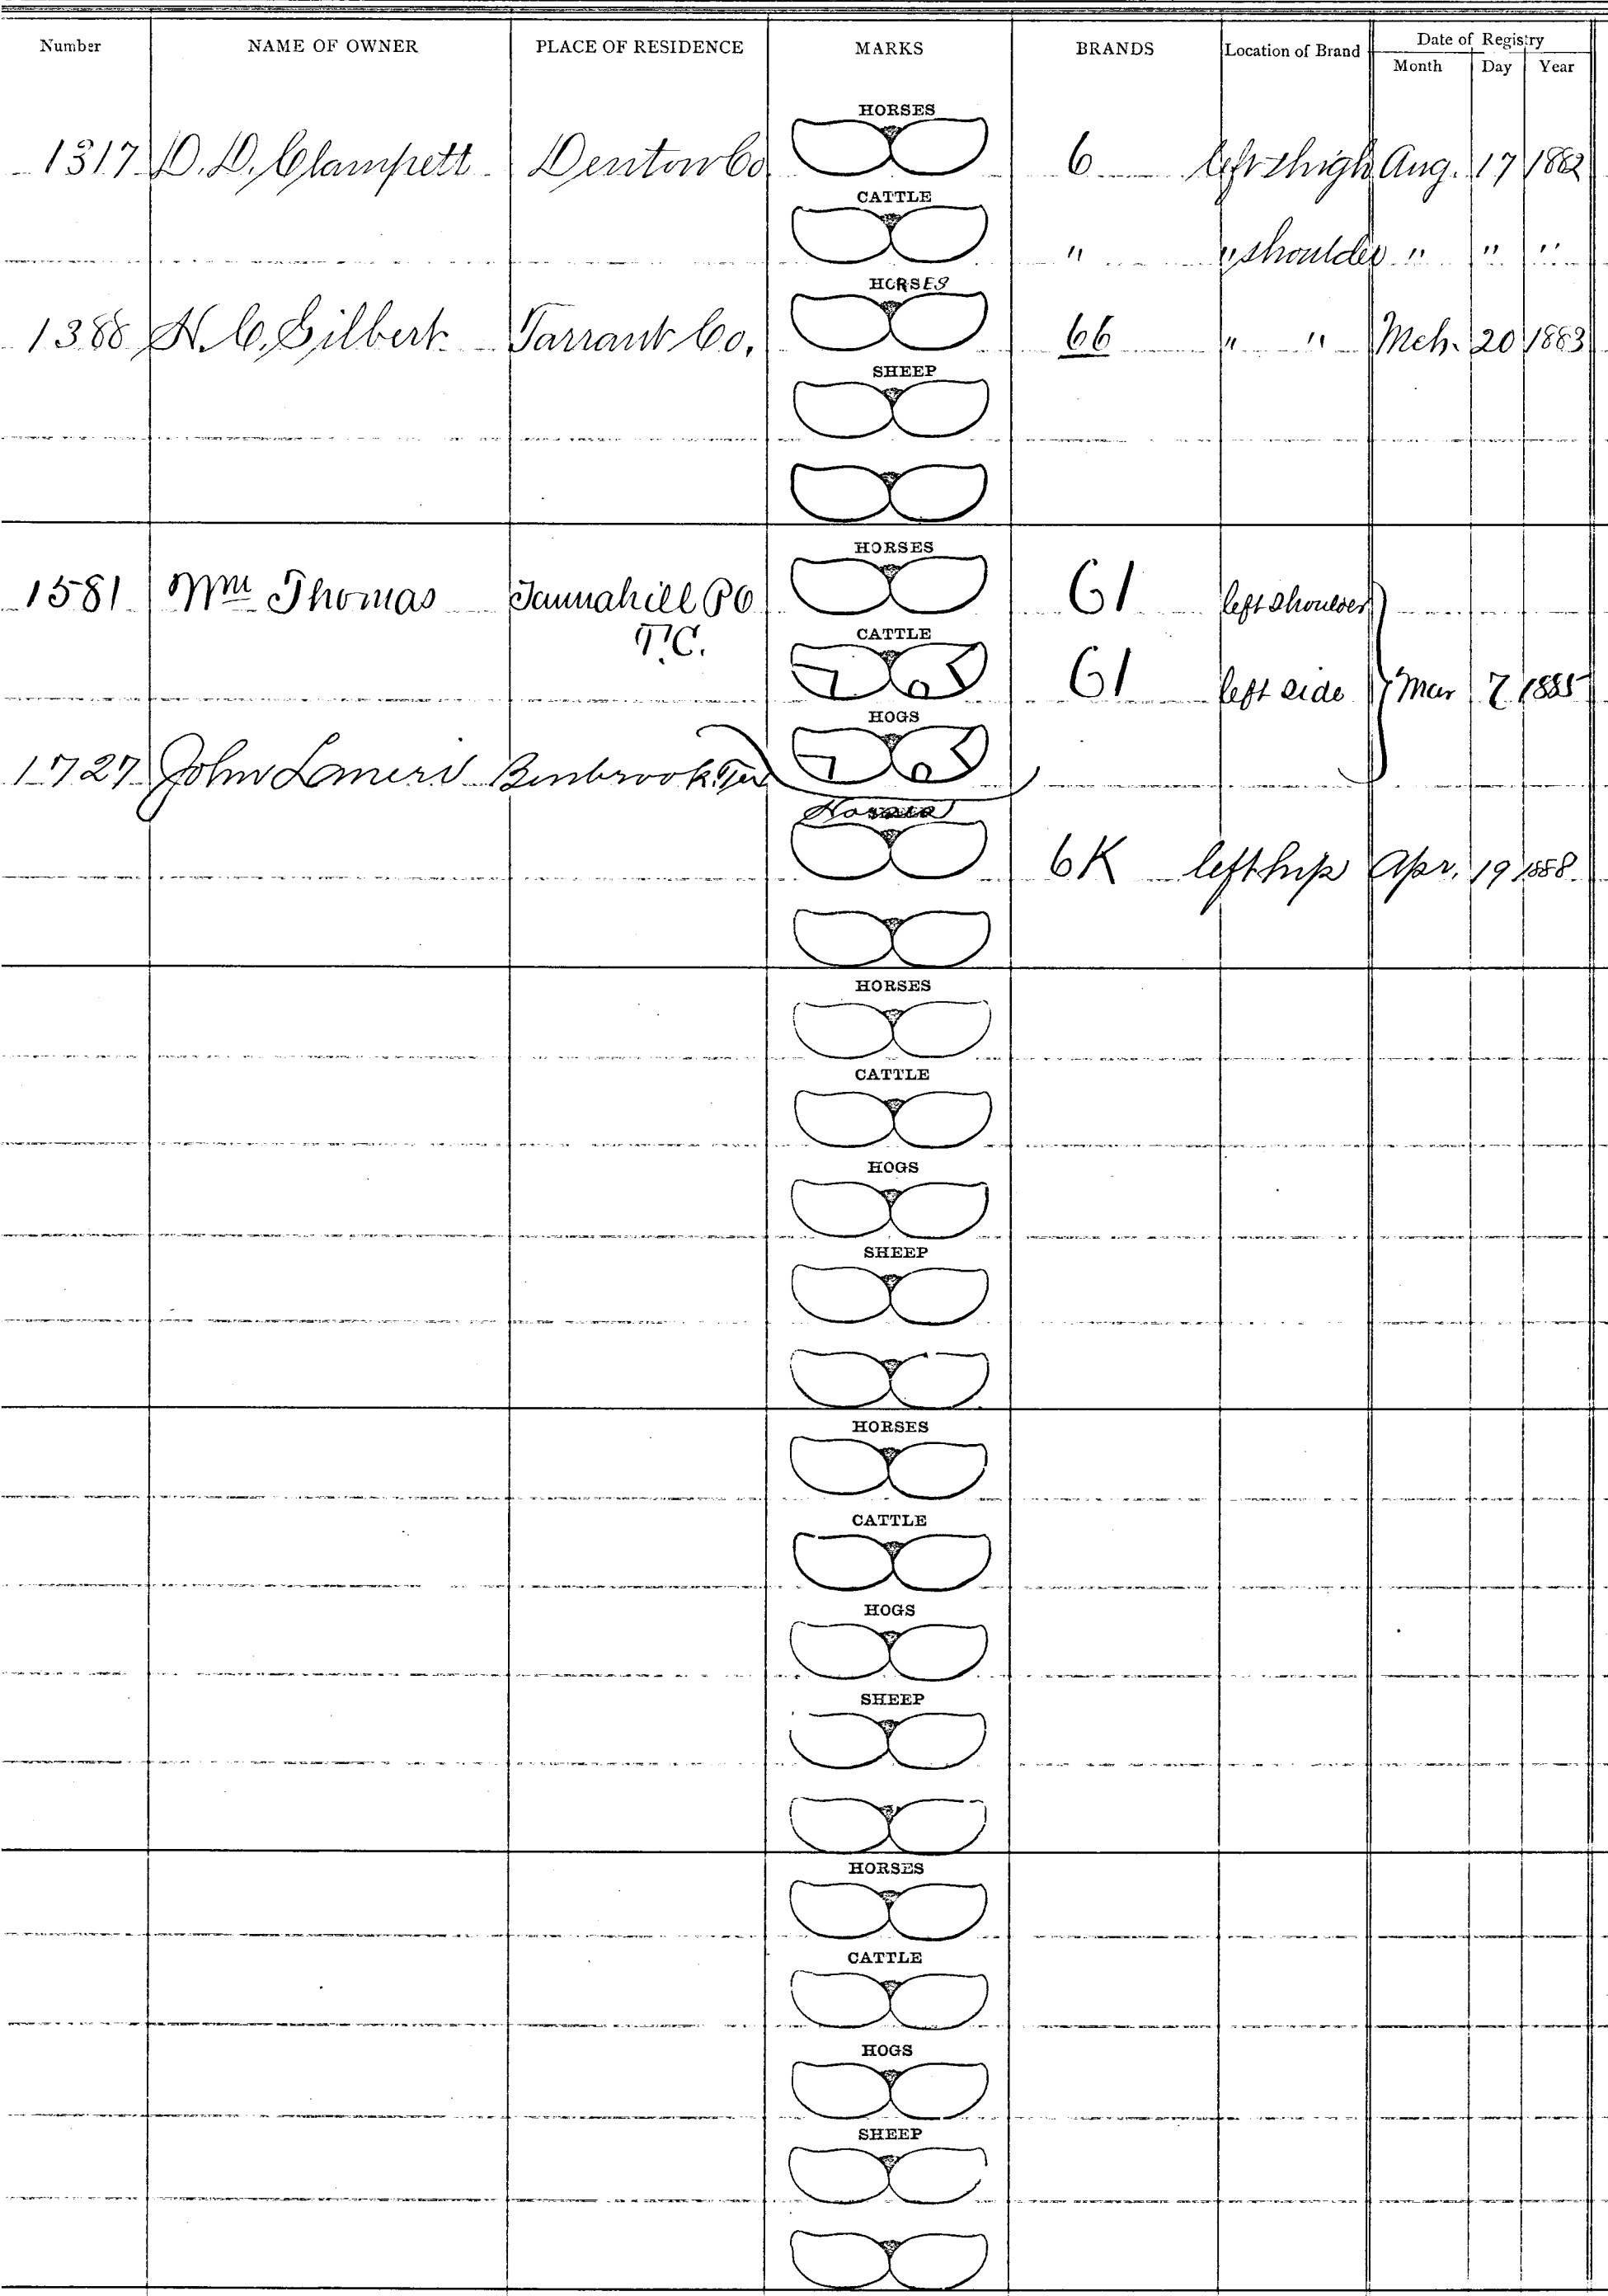 Number NAME OF OWNER PLACE OF RESIDENCE MARKS BRANDS Location of Brand Date of Registry
Month Day Year
HORSES
1317 D. D. Clampett Denton Co 6 left thigh Aug. 17 1882
CATTLE
" " shoulder " " "
HORSES
1388 H. C. Gilbert Tarrant Co. 66 " " Mch. 20 1883
SHEEP
HORSES
1581 Wm Thomas Tannahill PO 61 left shoulder
T.C.
CATTLE
61 left side Mar 7 1885
HOGS
1727 John Benbrook Tex
Horses
6K left hip Apr. 19 1888
HORSES
CATTLE
HOGS
SHEEP
HORSES
CATTLE
HOGS
SHEEP
HORSES
CATTLE
HOGS
SHEEP